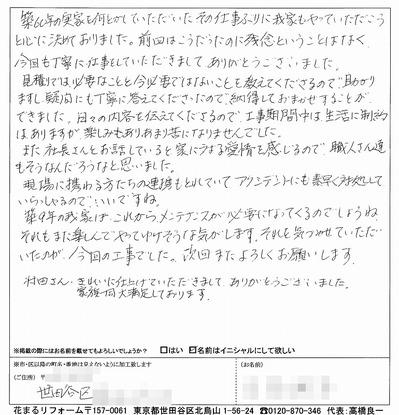 築60年の実家を何とかしていただいた その仕事ふりに我家もやっていただこう
と心に決めておりました。前回はこうだったのに残念ということはなく
今回も丁寧に仕事をしていただきまして ありがとうございました。
見積りでは必要なことと今必要ではないことを教えてくださるので、助かり
ますし疑問にも丁寧に答えてくださったので、納得しておまかせすることが
できました。日々の内容を伝えてくださるので、工事期間中は生活に制約
はありますが 楽しみもありあまり苦になりませんでした。
また社長さんとお話していると家に対する愛情を感じるので、職人さん達
もそうなんだろうなと思いました。
現場に携わる方たちの連携もとれていてアクシデントにも素早く対処して
いらっしゃるので、いいですね。
築9年の我家は これからメンテナンスが必要になってくるのでしょうね
それもまた楽しんでやってゆけそうな気がします。それを気づかせていただ
いたのが、今回の工事でした。次回またよろしくお願いします。
村田さん、きれいに仕上げていただきまして ありがとうございました。
家族一同大満足しております。
※掲載の際にはお名前を載せてもよろしいでしょうか? □はい ☑名前はイニシャルにして欲しい
※市・区以降の町名・番地は見えないように加工致します
(ご住所) 世田谷区
(お名前)
花まるリフォーム 〒157-0061 東京都世田谷区北烏山1-56-24 ☎0120-870-346 代表:高橋良一